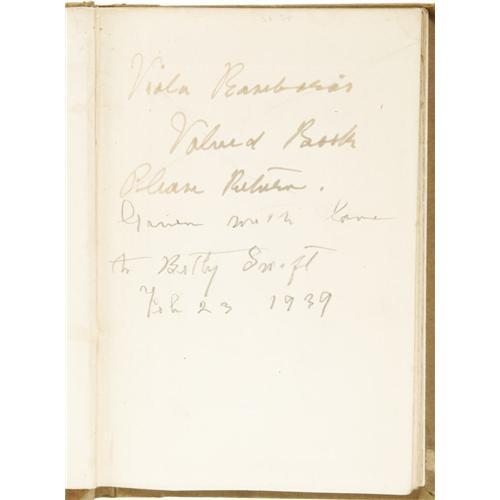 Viola Roseboro's
Valued Book
Please Return.
Given with love
to Betty Swift
Feb 23 1939